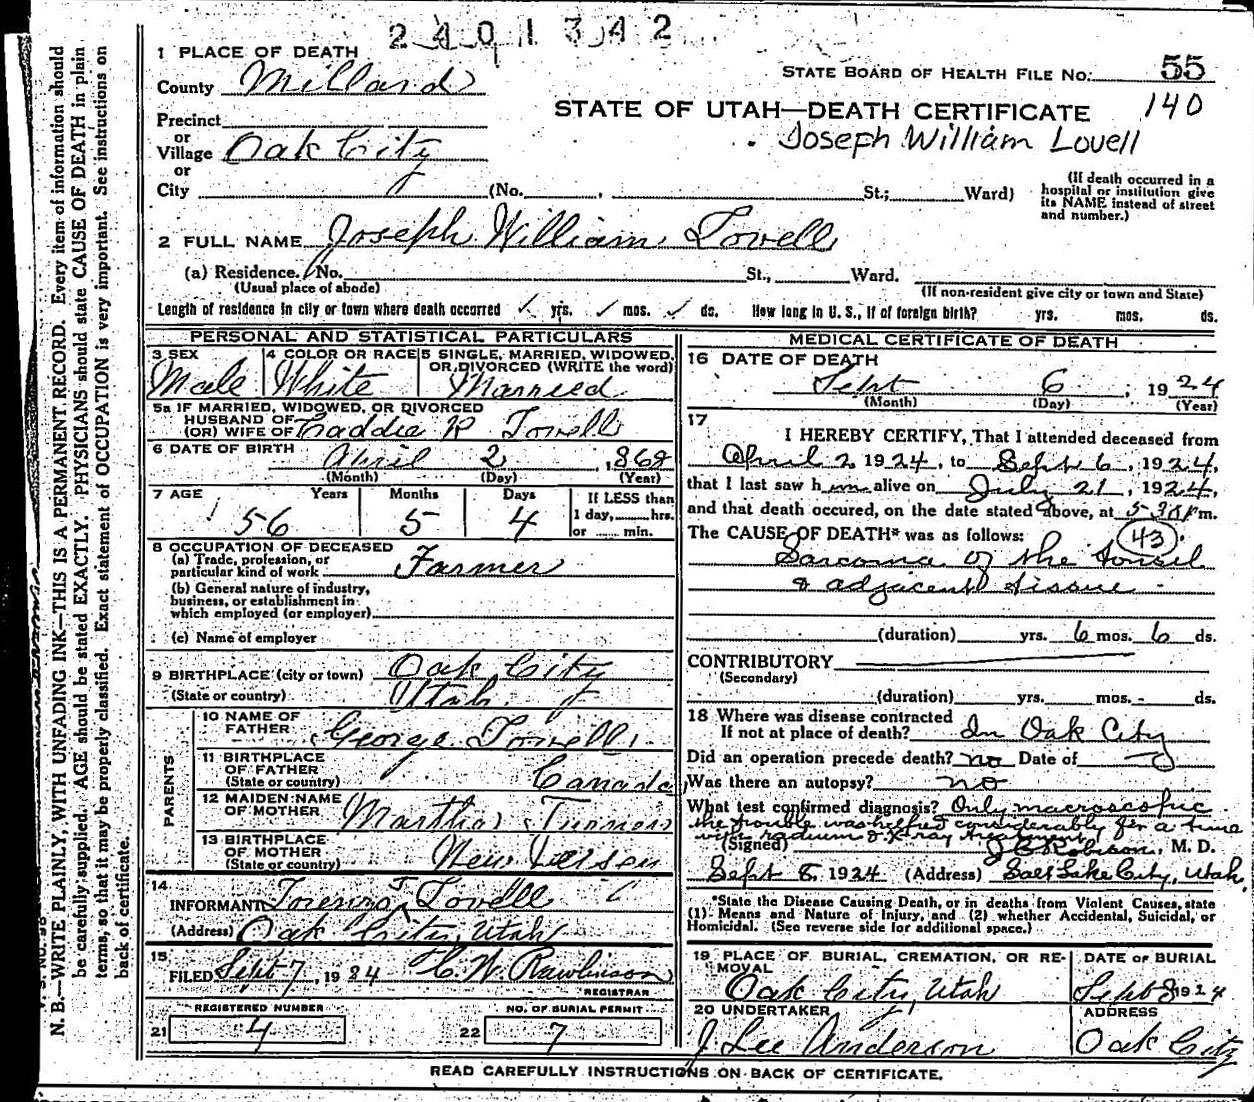 2401342
1 PLACE OF DEATH
STATE BOARD OF HEALTH FILE No. 55
County Millard
STATE OF UTAH—DEATH CERTIFICATE 140
Precinct
Joseph William Lovell
or
Village Oak City
or
City (No. , St.; Ward)
(If death occurred in a
hospital or institution give
its NAME instead of street
and number.)
2 FULL NAME Joseph William Lovell
(a) Residence. No. St., Ward.
(Usual place of abode)
(If non-resident give city or town and State)
Length of residence in city or town where death occurred ✓ yrs. ✓ mos. ✓ ds. How long in U. S., if of foreign birth? yrs. mos. ds.
PERSONAL AND STATISTICAL PARTICULARS
3 SEX
Male
4 COLOR OR RACE
White
5 SINGLE, MARRIED, WIDOWED,
OR DIVORCED (WRITE the word)
Married
5a IF MARRIED, WIDOWED, OR DIVORCED
HUSBAND OF
(OR) WIFE OF Laddie R Lovell
6 DATE OF BIRTH
April 2, 1868
(Month) (Day) (Year)
7 AGE
Years Months Days
56 5 4
If LESS than
1 day, hrs.
or min.
8 OCCUPATION OF DECEASED
(a) Trade, profession, or
particular kind of work Farmer
(b) General nature of industry,
business, or establishment in
which employed (or employer)
(c) Name of employer
9 BIRTHPLACE (city or town) Oak City
(State or country) Utah
PARENTS
10 NAME OF
FATHER George Lovell
11 BIRTHPLACE
OF FATHER
(State or country) Canada
12 MAIDEN NAME
OF MOTHER Martha
13 BIRTHPLACE
OF MOTHER
(State or country) New Jersey
14
INFORMANT Lorenzo J Lovell
(Address) Oak City, Utah
15
FILED Sept 7, 1924 C. W. Rawlinson
REGISTRAR
REGISTERED NUMBER
21 4
NO. OF BURIAL PERMIT
22 7
MEDICAL CERTIFICATE OF DEATH
16 DATE OF DEATH
Sept 6, 1924
(Month) (Day) (Year)
17
I HEREBY CERTIFY, That I attended deceased from
April 2 1924, to Sept 6, 1924,
that I last saw him alive on July 21, 1924,
and that death occured, on the date stated above, at 5-30 P m.
The CAUSE OF DEATH* was as follows: 43
Sarcoma of the tonsil
& adjacent tissue
(duration) yrs. 6 mos. 6 ds.
CONTRIBUTORY
(Secondary)
(duration) yrs. mos. ds.
18 Where was disease contracted
If not at place of death? In Oak City
Did an operation precede death? no Date of
Was there an autopsy? no
What test confirmed diagnosis? Only macroscopic
the trouble was helped considerably for a time
with radium & X-ray treatment
(Signed) J C Robison, M. D.
Sept 8, 1924 (Address) Salt Lake City, Utah.
*State the Disease Causing Death, or in deaths from Violent Causes, state
(1) Means and Nature of Injury, and (2) whether Accidental, Suicidal, or
Homicidal. (See reverse side for additional space.)
19 PLACE OF BURIAL, CREMATION, OR RE-
MOVAL
Oak City, Utah
DATE OF BURIAL
Sept 8 1924
20 UNDERTAKER
J. Lee Anderson
ADDRESS
Oak City
READ CAREFULLY INSTRUCTIONS ON BACK OF CERTIFICATE.
N. B.—WRITE PLAINLY, WITH UNFADING INK—THIS IS A PERMANENT RECORD. Every item of information should
be carefully supplied. AGE should be stated EXACTLY. PHYSICIANS should state CAUSE OF DEATH in plain
terms, so that it may be properly classified. Exact statement of OCCUPATION is very important. See instructions on
back of certificate.